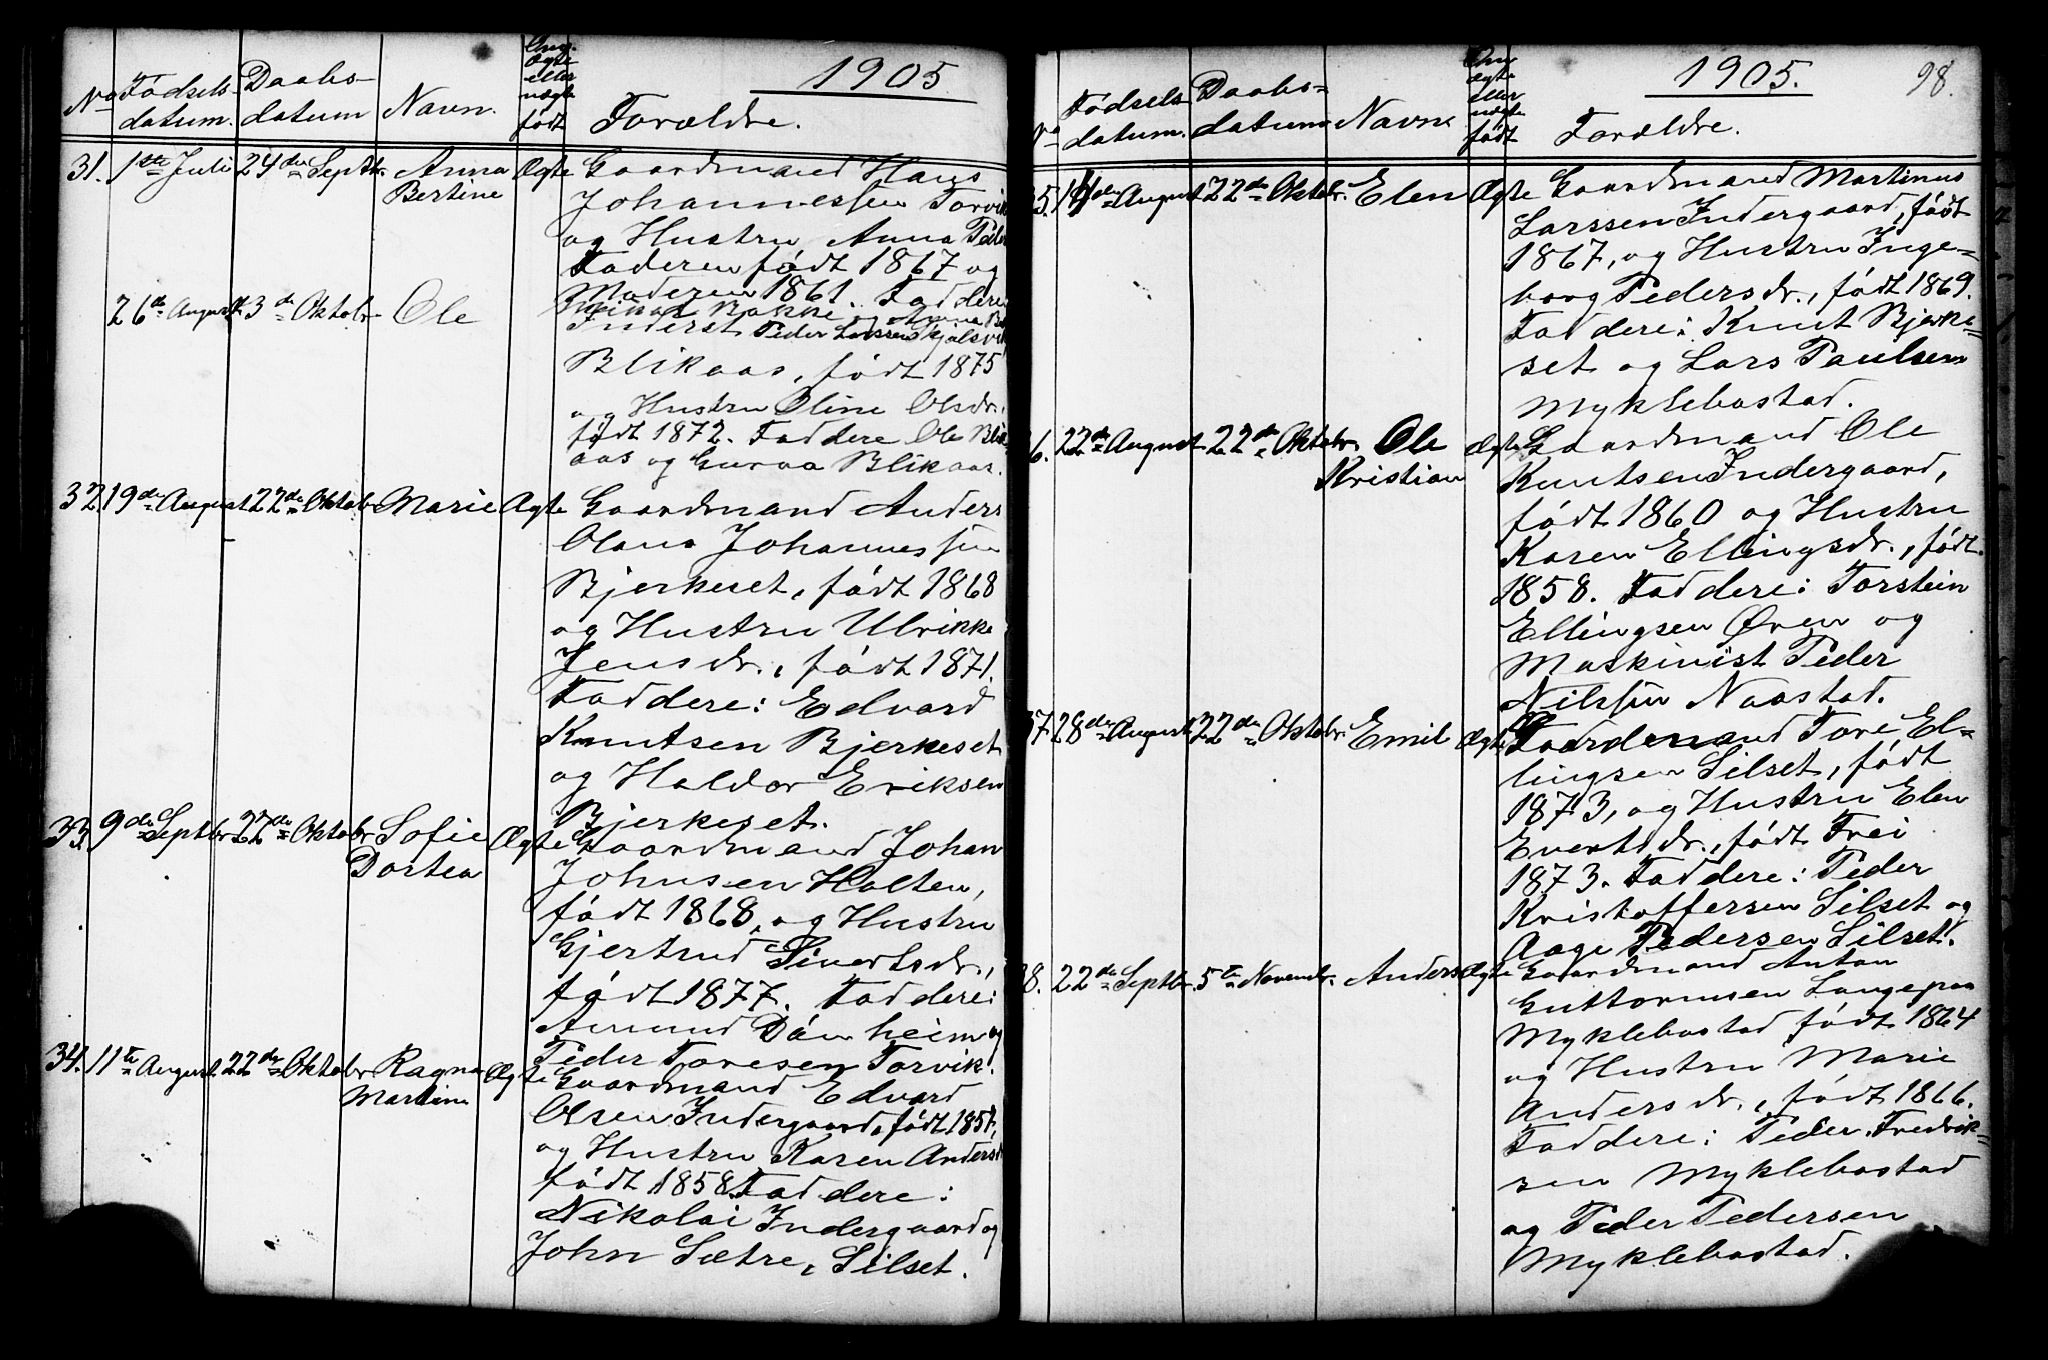 1905
No Fødsels-datum. Daabs-datum Navn. Om ægte eller uægte født Forældre.
31. 1ste Juli 24de Septbr. Anna Bertine Ægte Gaardmand Hans
Johannessen Torvik
og Hustru Anna
Faderen født 1867 og
Moderen 1861. Faddere
Bakke og Anna
26de August 3de Oktobr. Ole Inderst Peder Larssen Skjølsvik
Blikaas, født 1875
og Hustru Oline Olsdr.
født 1872. Faddere Ole Blik
aas og Guroa Blikaas.
32. 19de August 22de Oktobr Marie Ægte Gaardmand Anders
Olaus Johannessen
Bjerkeset, født 1868
og Hustru Ulrikke
Jensdr., født 1871.
Faddere: Edvard
Knutsen Bjerkeset
og Haldor Eriksen
Bjerkeset.
33. 9de Septbr 22de Oktobr Sofie Dortea Ægte Gaardmand Johan
Johnsen Holten,
født 1868, og Hustru
Gjertrud Sivertsdr.,
født 1877. Faddere:
Amund Dånheim og
Peder Toresen Torvik.
34. 11te August 22de Oktobr Ragna Martine Ægte Gaardmand Edvard
Olsen Indergaard, født 1857,
og Hustru Karen Andersd
født 1858. Faddere:
Nikolai Indergaard og
John Sætre, Silset.
1905. 98.
No Fødsels datum. Daabs-datum Navn Om ægte eller uægte født Forældre.
35. 14de August 22de Oktobr. Elen Ægte Gaardmand Martinus
Larssen Indergaard, født
1867, og Hustru Inge-
borg Pedersdr., født 1869.
Faddere: Knut Bjerke-
set og Lars Paulsen
Myklebostad.
36. 22de August 22de Oktobr. Ole Kristian Ægte Gaardmand Ole
Knutsen Indergaard,
født 1860 og Hustru
Karen Ellingsdr., født
1858. Faddere: Torstein
Ellingsen Øren og
Maskinist Peder
Nilssen Naastad.
37. 28de August 22de Oktobr. Emil Ægte Gaardmand Tore El-
lingsen Silset, født
1873, og Hustru Elen
Evertsdr., født Frei
1873. Faddere: Peder
Kristoffersen Silset og
Aage Pedersen Silset.
38. 22de Septbr. 5te Novembr. Anders Ægte Gaardmand Anton
Guttormsen Langepaa
Myklebostad født 1864
og Hustru Marie
Andersdr., født 1866.
Faddere: Peder Fredrik-
sen Myklebostad
og Peder Pedersen
Myklebostad.